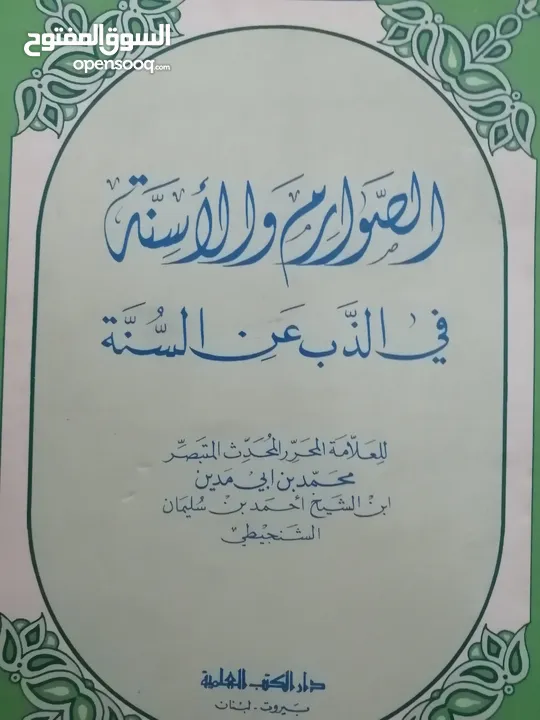 السوق المفتوح
opensooq.com
الصَّوارِم وَالأَسِنَّة
في الذَّب عَنِ السُّنَّة
للعلّامة المحرّر المُحَدِّث المتبَصِّر
محمّد بن أبي مَدين
ابن الشيخ أحمد بن سُليمان
الشنجيطي
دار الكتب العلمية
بيروت - لبنان